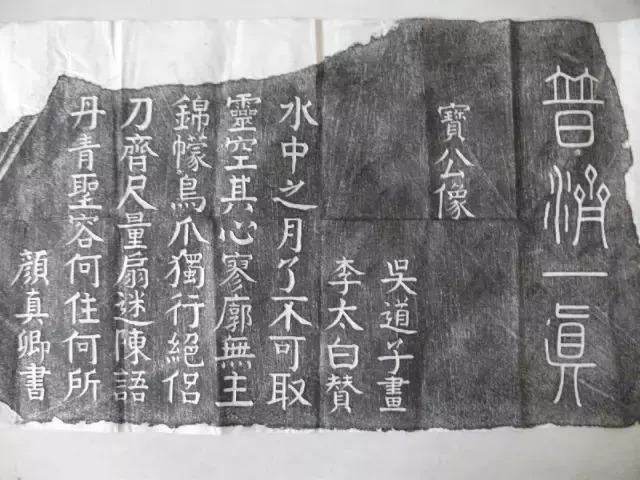 普消一眞
寶公像
吳道子畫
李太白贊
水中之月了不可取
靈空其心寥廓無主
錦幪鳥爪獨行絕侶
刀齊尺量扇迷陳語
丹青聖容何住何所
顏真卿書